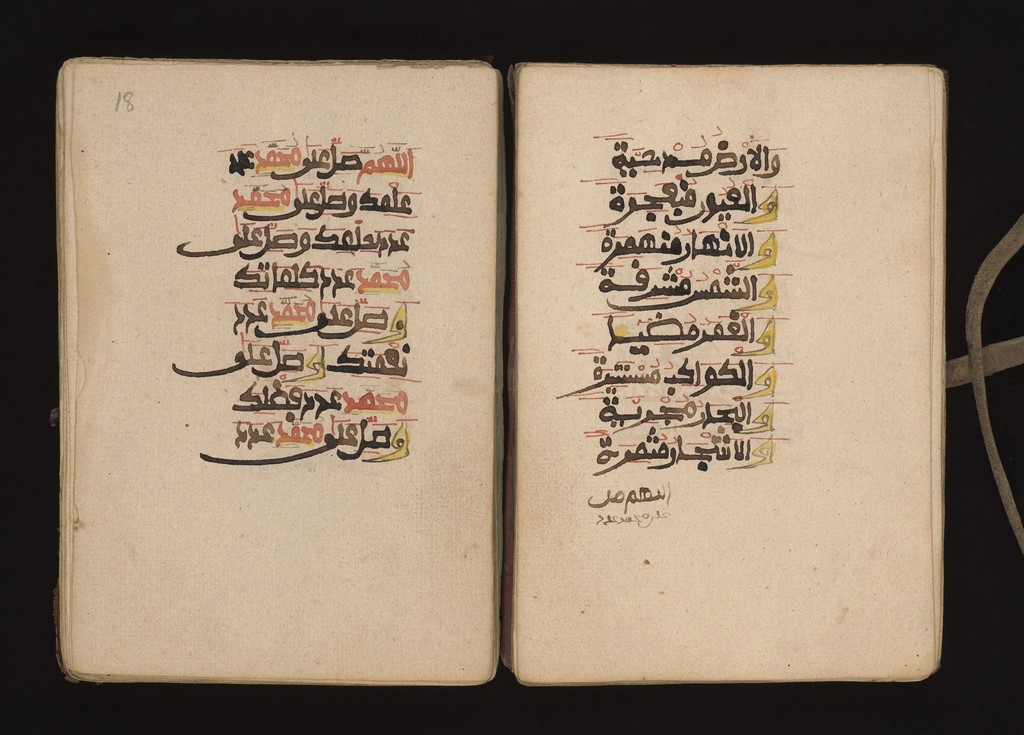 والارض مدحية
والعيون منفجرة
والانهار منهمرة
والشمس مشرفة
والقمر مضيا
والكواكب مستنيرة
والبحار مجرية
والاشجار مثمرة
اللهم صل
على محمد عدد
18
اللهم صل على محمد عدد
علمك وصل على محمد
عدد حلمك وصل على
محمد عدد كلماتك
وصل على محمد عدد
نعمتك وصل على
محمد عدد فضلك
وصل على محمد عدد